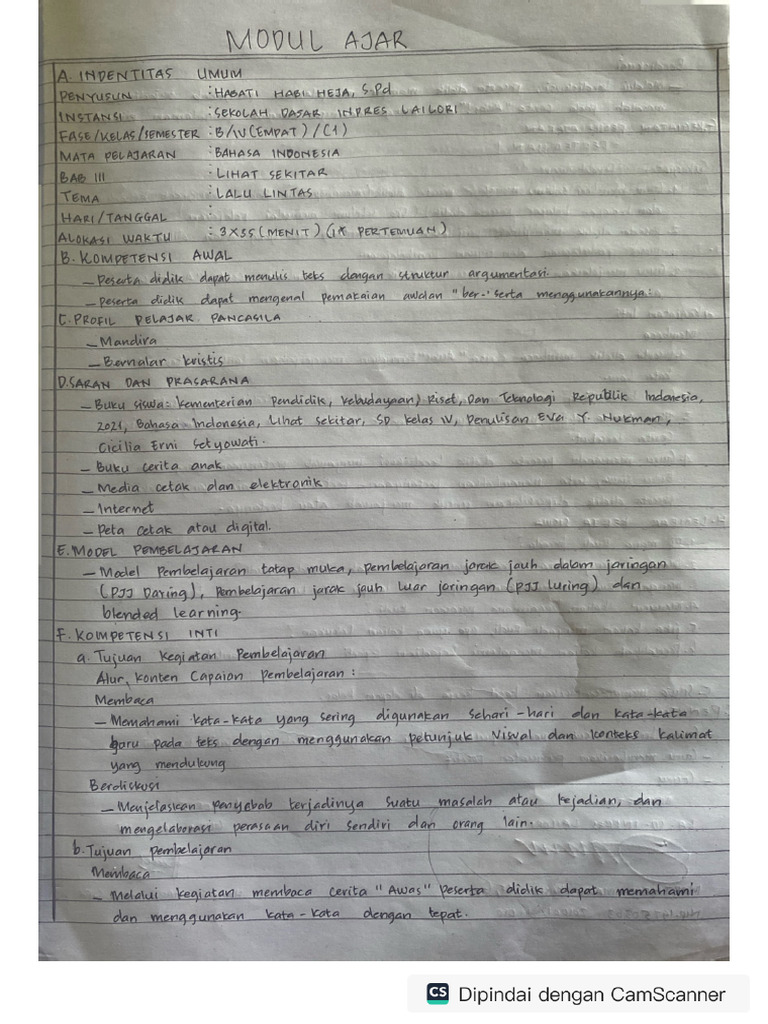 MODUL AJAR
A. INDENTITAS UMUM
PENYUSUN : HABATI HABI HEJA, S.Pd
INSTANSI : SEKOLAH DASAR INPRES LAILORI
FASE/KELAS/SEMESTER : B/IV (EMPAT) / (1)
MATA PELAJARAN : BAHASA INDONESIA
BAB III : LIHAT SEKITAR
TEMA : LALU LINTAS
HARI/TANGGAL :
ALOKASI WAKTU : 3x35 (MENIT) (1x PERTEMUAN)
B. KOMPETENSI AWAL
- Peserta didik dapat menulis teks dengan struktur argumentasi.
- Peserta didik dapat mengenal pemakaian awalan "ber-" serta menggunakannya.
C. PROFIL PELAJAR PANCASILA
- Mandira
- Bernalar kristis
D. SARAN DAN PRASARANA
- Buku siswa: Kementerian Pendidik, Kebudayaan, Riset, Dan Teknologi Republik Indonesia,
2021, Bahasa Indonesia, Lihat Sekitar, SD Kelas IV, Penulisan Eva Y. Nukman,
Cicilia Erni Setyowati.
- Buku cerita anak
- Media cetak dan elektronik
- Internet
- Peta cetak atau digital.
E. MODEL PEMBELAJARAN
- Model Pembelajaran tatap muka, pembelajaran jarak jauh dalam jaringan
(PJJ Daring), Pembelajaran jarak jauh luar jaringan (PJJ Luring) dan
blended learning.
F. KOMPETENSI INTI
a. Tujuan Kegiatan Pembelajaran
Alur, Konten Capaian Pembelajaran :
Membaca
- Memahami kata-kata yang sering digunakan sehari-hari dan kata-kata
baru pada teks dengan menggunakan petunjuk Visual dan konteks kalimat
yang mendukung
Berdiskusi
- Menjelaskan penyebab terjadinya suatu masalah atau kejadian, dan
mengelaborasi perasaan diri sendiri dan orang lain.
b. Tujuan pembelajaran
Membaca
- Melalui kegiatan membaca cerita "Awas" peserta didik dapat memahami
dan menggunakan kata-kata dengan tepat.
CS Dipindai dengan CamScanner